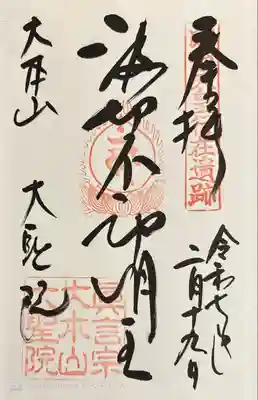 奉拝
令和七年
二月十九日
波切不動明王
大本山
大聖院
真言宗
大本山
大聖院